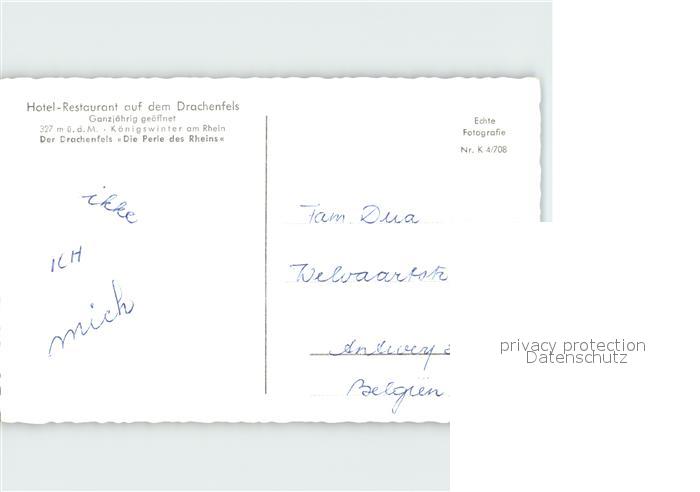 Hotel-Restaurant auf dem Drachenfels
Ganzjährig geöffnet
327 m ü. d. M. · Königswinter am Rhein
Der Drachenfels »Die Perle des Rheins«
Echte
Fotografie
Nr. K 4/708
ikke
ICH
mich
Fam. Dua
Welvaartstr
Belgien
privacy protection
Datenschutz